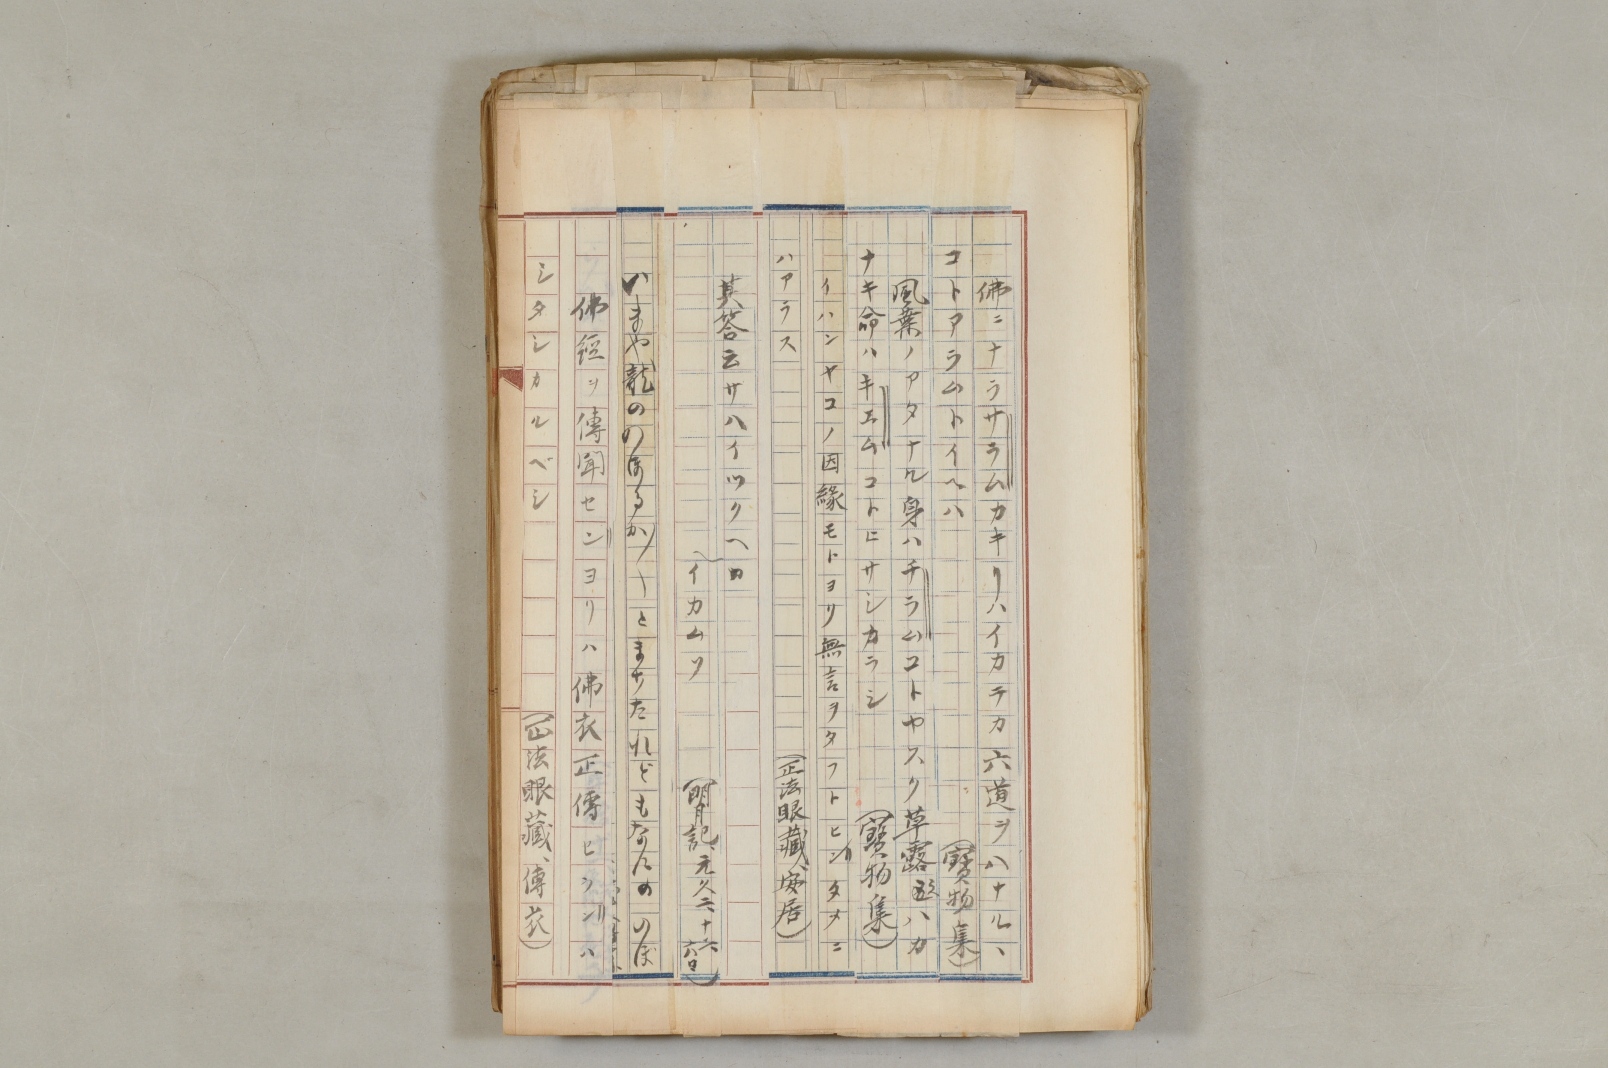 佛ニナラサラムカキリハイカテカ六道ヲハナルヽ
コトアラムトイヘハ
(寶物集)
風葉ノアタナル身ハチラムコトヤスク草露ハカ
ナキ命ハキエムコトヒサシカラシ
(寶物集)
イハンヤコノ因緣モトヨリ無言ヲタフトヒンタメニ
ハアラス
(正法眼藏、安居)
其答云サハイツクヘ
イカムツ
(明月記、元久二十六
いまや龍ののほるかとまちたれどもなにの のぼ
佛經ヲ傳聞センヨリハ佛衣正傳ヒンハ
シタシカルベシ
(正法眼藏、傳衣)